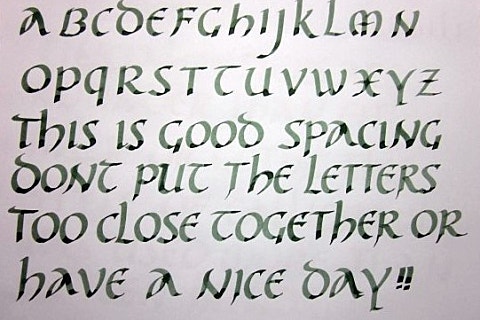 A B C D E F G H I J K L M N
O P Q R S T T U V W X Y Z
THIS IS GOOD SPACING
DONT PUT THE LETTERS
TOO CLOSE TOGETHER OR
HAVE A NICE DAY!!